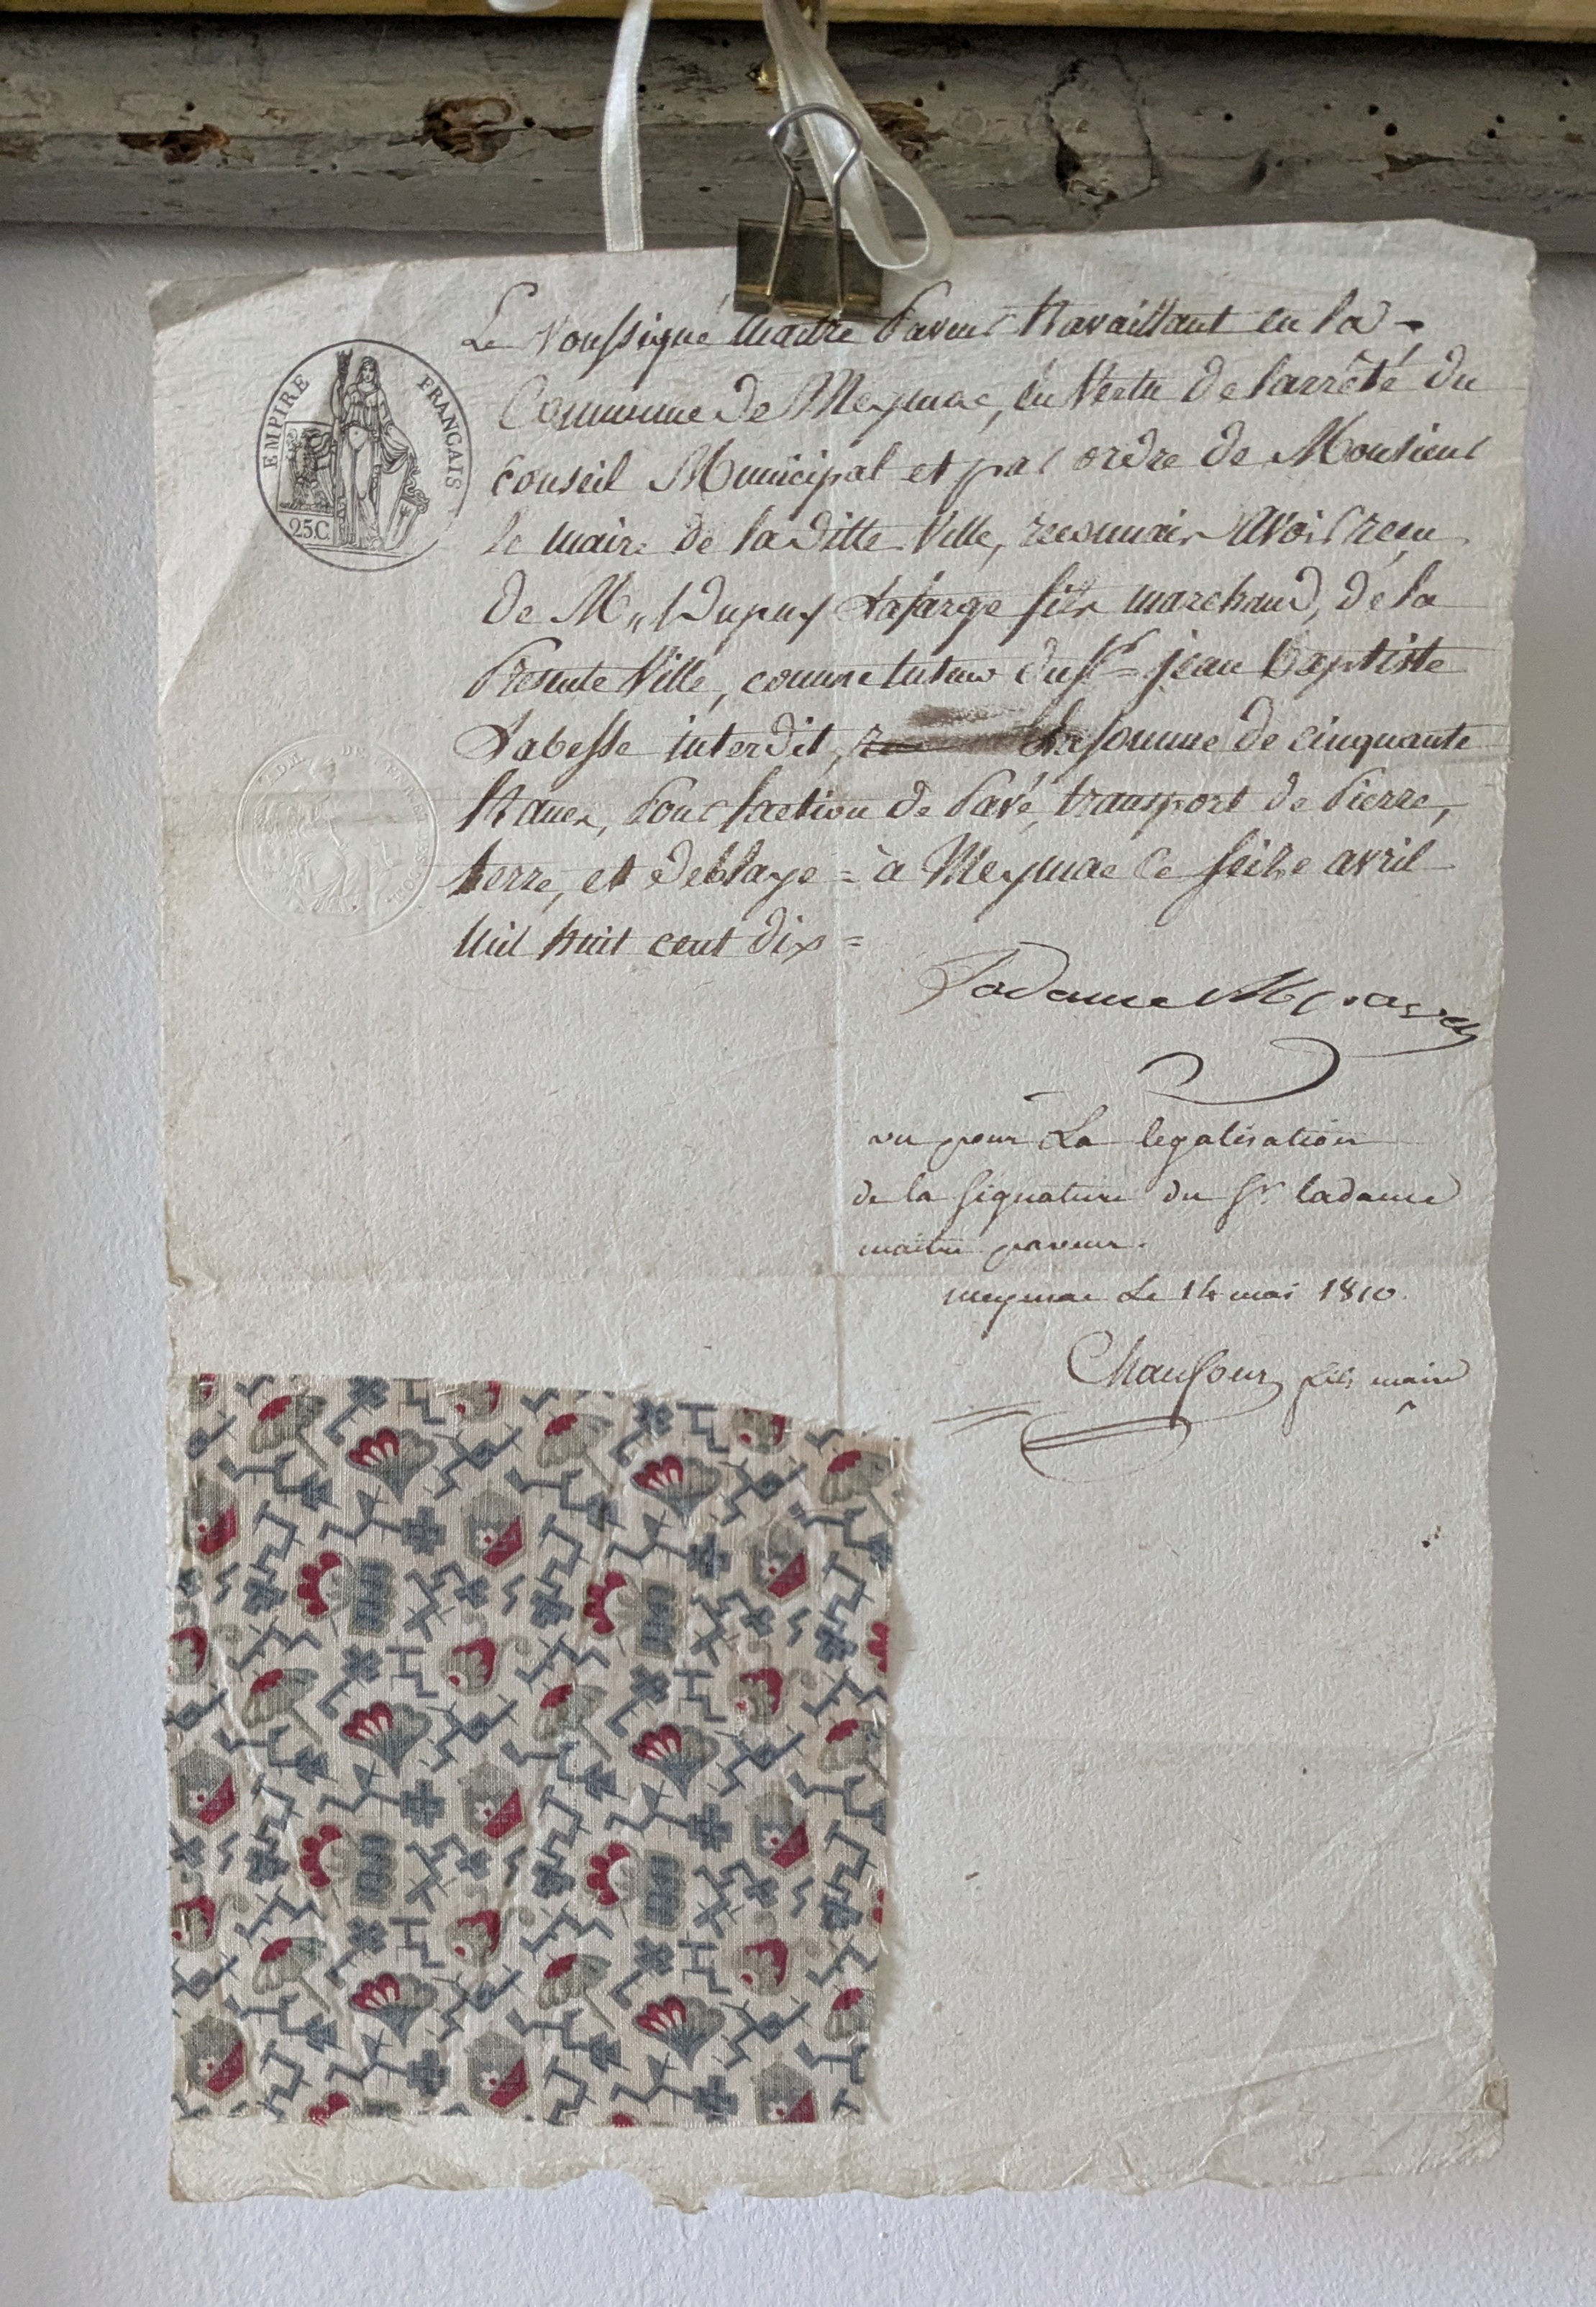 EMPIRE FRANÇAIS
25C.
Le Soussigné maitre Paveur travaillant en la
Commune de Meymac, en Vertu de larrêté du
Conseil Municipal et par ordre de Monsieur
le maire de la ditte Ville, reconnais avoir reçu
de Mr Dupuy Lafarge fils marchand, de la
Presente Ville, comme tuteur du Sr = jean Baptiste
Labesse interdit, la somme de cinquante
francs, pour faction de Pavé, transport de Pierre,
terre, et deblaye = à Meymac ce seize avril
mil huit cent dix =
Ladame
vu pour La legalisation
de la Signature du Sr ladame
maitre paveur.
meymac Le 14 mai 1810.
Chaufour fils maire